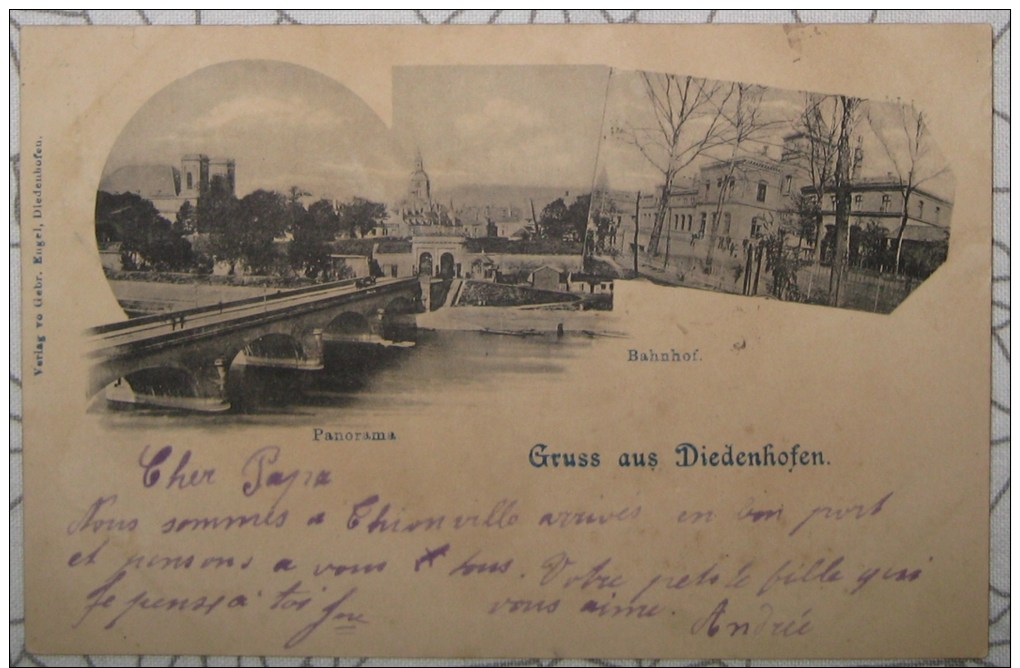 Verlag vo Gebr. Engel, Diedenhofen.
Bahnhof.
Panorama
Gruss aus Diedenhofen.
Cher Papa
Nous sommes a Thionville arrives en bon port
et pensons a vous tous. Votre petite fille qui
vous aime. Andrée
Je pense a toi